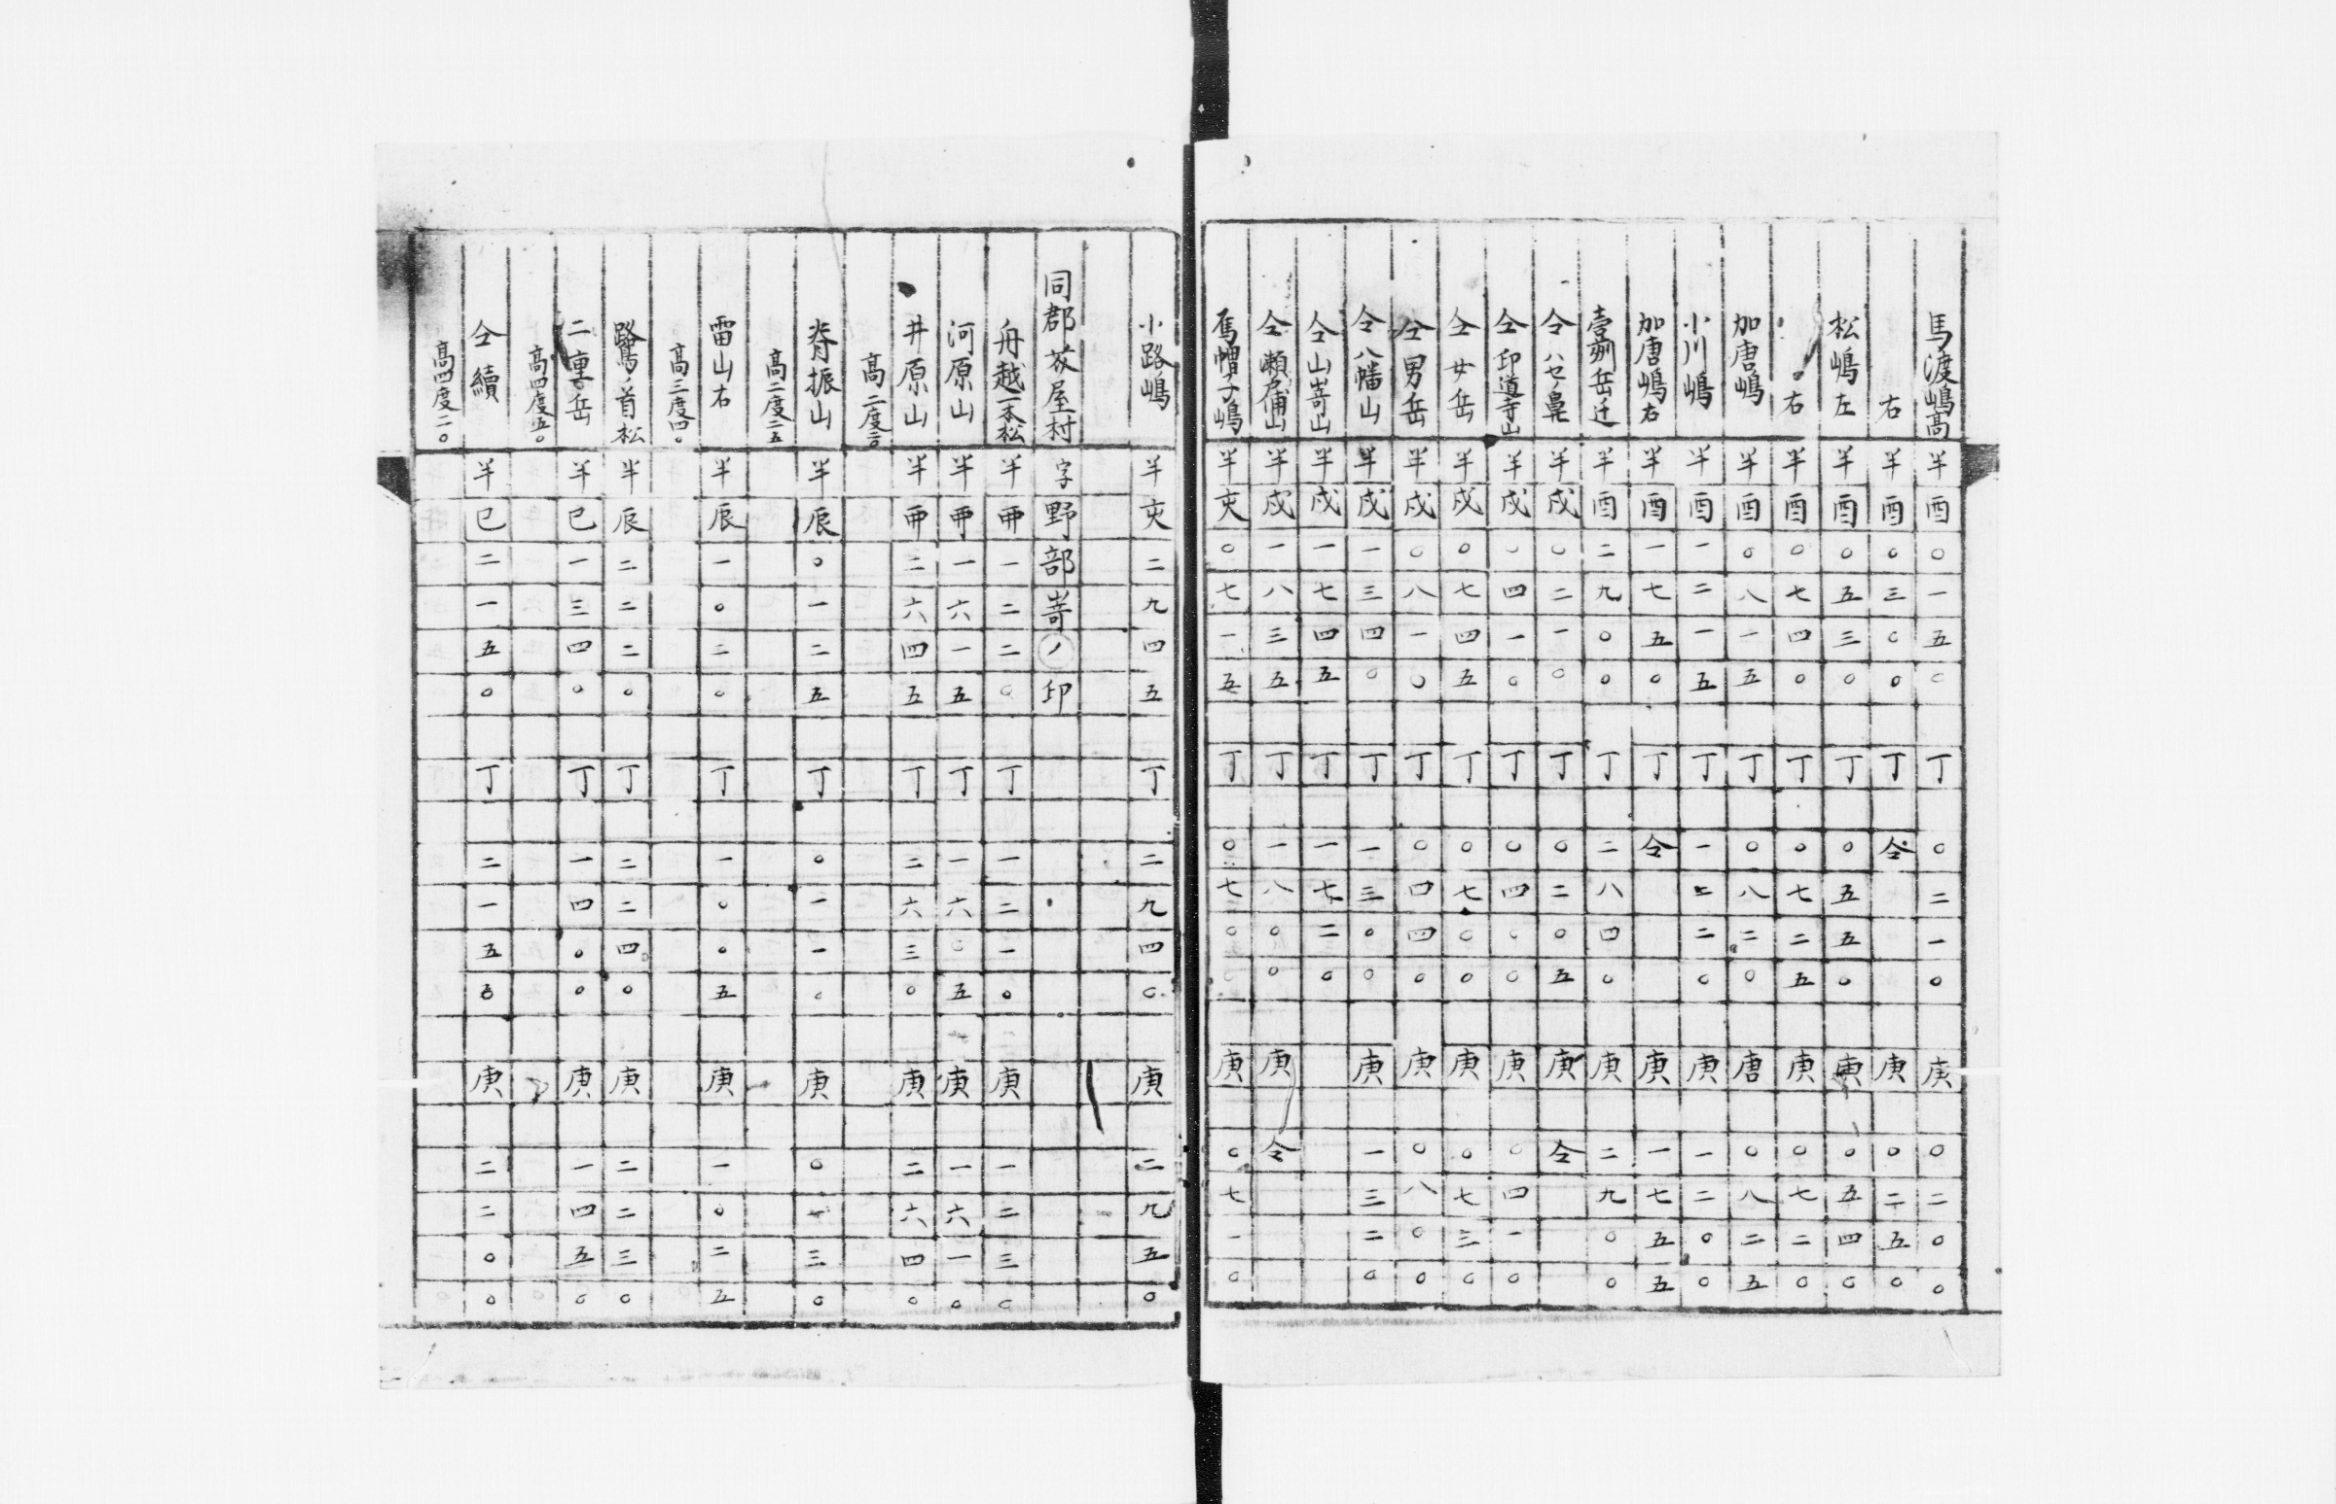 馬渡嶋高 半酉〇一五〇 丁 〇二一〇 庚 〇二〇〇
右 半酉〇三〇〇 丁 仝 庚 〇二五〇
松嶋左 半酉〇五三〇 丁 〇五五〇 庚 〇五四〇
〃右 半酉〇七四〇 丁 〇七二五 庚 〇七二〇
加唐嶋 半酉〇八一五 丁 〇八二〇 唐 〇八二五
小川嶋 半酉一二一五 丁 一二二〇 庚 一二〇〇
加唐嶋右 半酉一七五〇 丁 仝 庚 一七五五
壹州岳辻 半酉二九〇〇 丁 二八四〇 庚 二九〇〇
仝ハセノ鼻 半戌〇二一〇 丁 〇二〇五 庚 仝
仝印道寺山 半戌〇四一〇 丁 〇四〇〇 庚 〇四一〇
仝女岳 半戌〇七四五 丁 〇七〇〇 庚 〇七三〇
仝男岳 半戌〇八一〇 丁 〇四四〇 庚 〇八〇〇
仝八幡山 半戌一三四〇 丁 一三〇〇 庚 一三二〇
仝山嵜山 半戌一七四五 丁 一七二〇
仝瀬戸浦山 半戌一八三五 丁 一八〇〇 庚 仝
烏帽子嶋 半亥〇七一五 丁 〇七〇〇 庚 〇七一〇
小路嶋 半亥二九四五 丁 二九四〇 庚 二九五〇
同郡芥屋村 字野部嵜ノ印
舟越一本松 半丣一二二〇 丁 一二一〇 庚 一二三〇
河原山 半丣一六一五 丁 一六〇五 庚 一六一〇
井原山 半丣二六四五 丁 二六三〇 庚 二六四〇
高二度三〇
脊振山 半辰〇一二五 丁 〇一一〇 庚 〇一三〇
高二度二五
雷山右 半辰一〇二〇 丁 一〇〇五 庚 一〇二五
高三度四〇
鷺ノ首松 半辰二二二〇 丁 二二四〇 庚 二二三〇
二重岳 半巳一三四〇 丁 一四〇〇 庚 一四五〇
高四度五〇
仝續 半巳二一五〇 丁 二一五五 庚 二二〇〇
高四度二〇